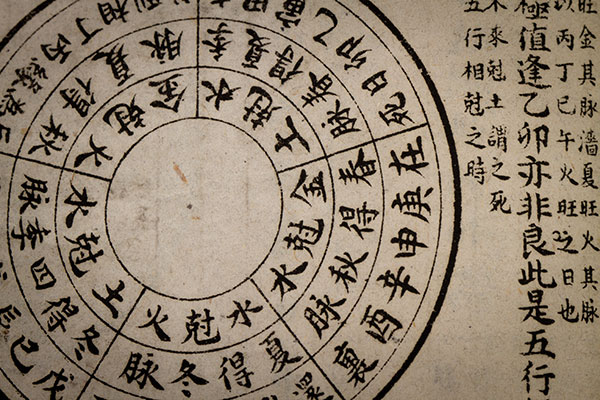 旺金其脉濇夏旺火其脉
以丙丁巳午火旺之日也
極值逢乙卯亦非良此是五行
不來尅土謂之死
五行相尅之時
寅乙卯日死
季夏得春脉
木尅土
在庚申辛酉裏
春得秋脉
金尅木
還
夏得冬脉
水尅火
戊己辰
冬得四季脉
土尅水
丙丁相到
秋得夏脉
火尅金